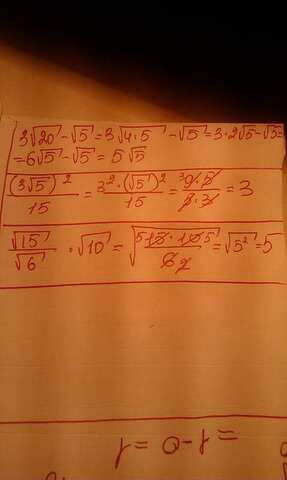 3√20 - √5 = 3√4·5 - √5 = 3·2√5 - √5 =
= 6√5 - √5 = 5√5
(3√5)² / 15 = 3²·(√5)² / 15 = ³9·5 / 5·3 = 3
√15 / √6 · √10 = √(⁵15·10⁵ / 6 2) = √5² = 5
= 1-0 = 1